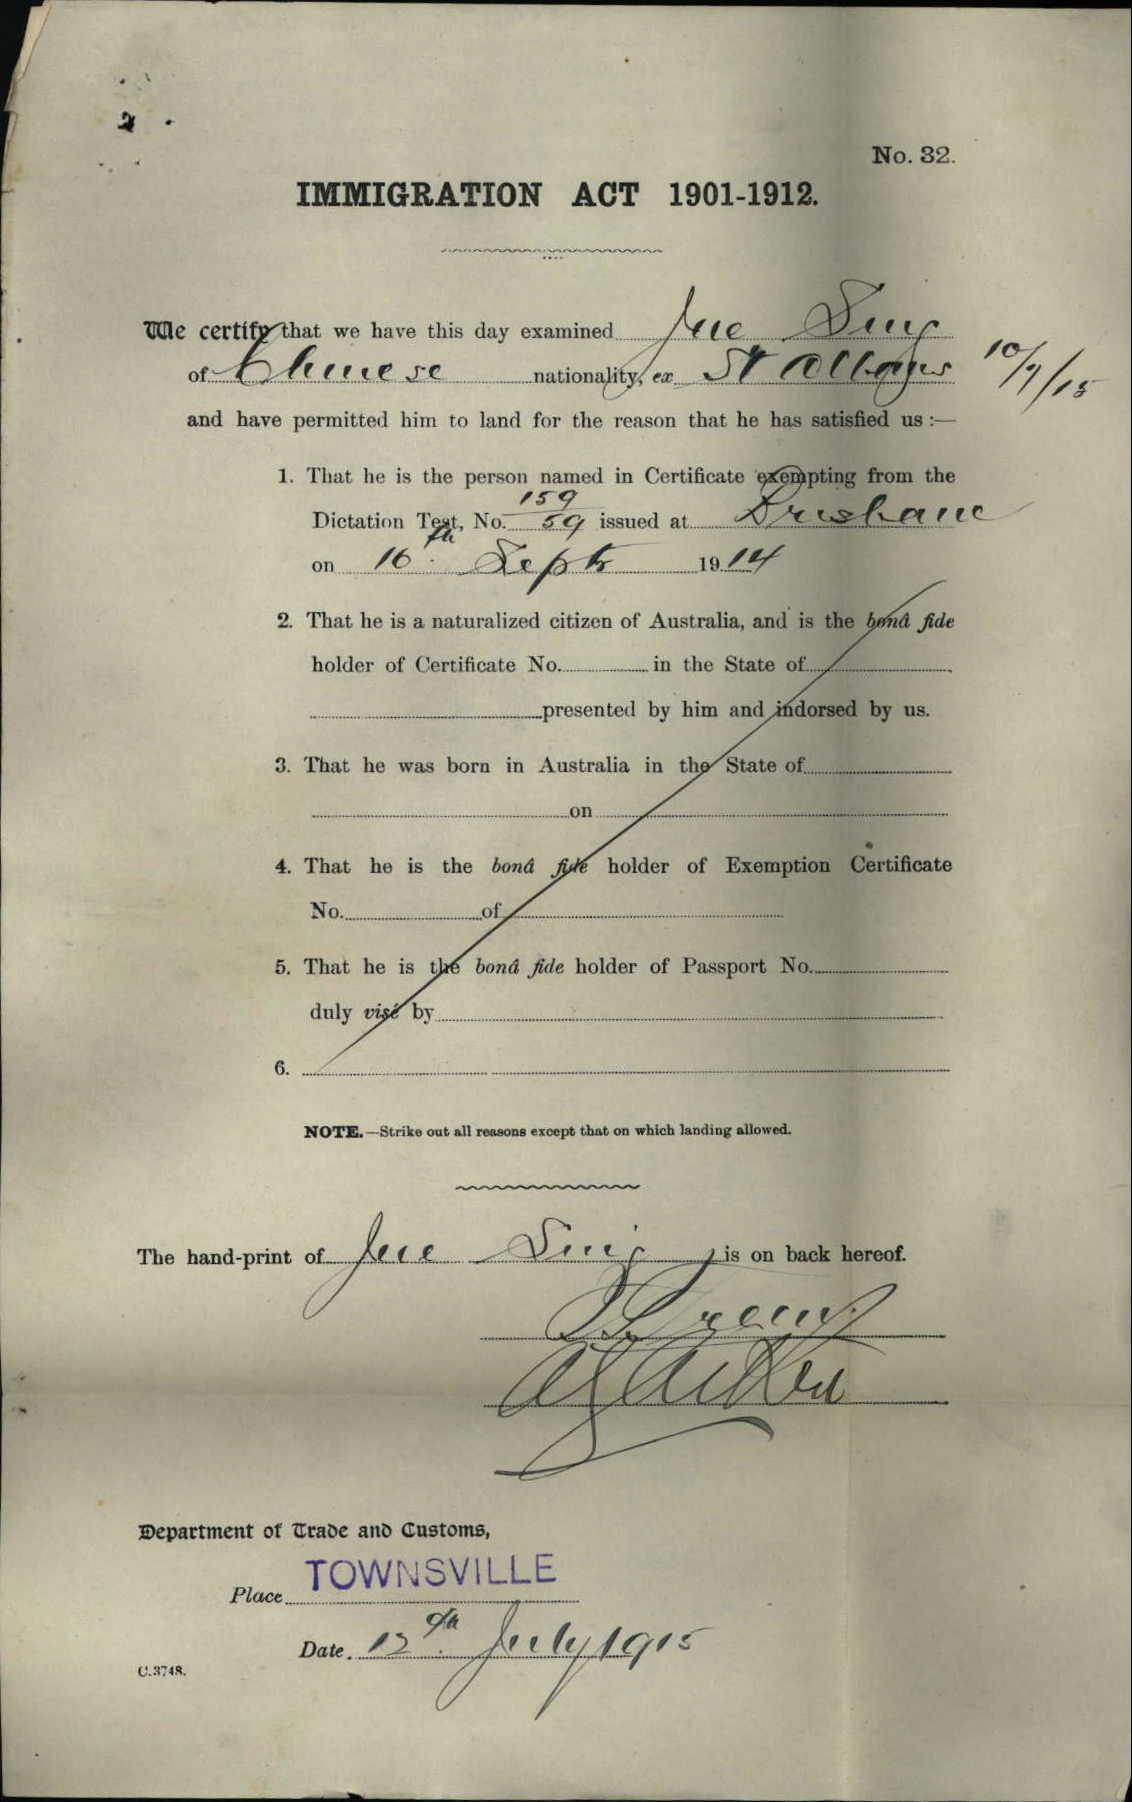 No. 32.
IMMIGRATION ACT 1901-1912.
We certify that we have this day examined Jue Sing
of Chinese nationality, ex St Albans 10/7/15
and have permitted him to land for the reason that he has satisfied us :—
1. That he is the person named in Certificate exempting from the
Dictation Test, No. 159/59 issued at Brisbane
on 16th Septr 1914
2. That he is a naturalized citizen of Australia, and is the bonâ fide
holder of Certificate No. in the State of
presented by him and indorsed by us.
3. That he was born in Australia in the State of
on
4. That he is the bonâ fide holder of Exemption Certificate
No. of
5. That he is the bonâ fide holder of Passport No.
duly visé by
6.
NOTE.—Strike out all reasons except that on which landing allowed.
The hand-print of Jue Sing is on back hereof.
Department of Trade and Customs,
Place TOWNSVILLE
Date. 12th July 1915
C.3748.